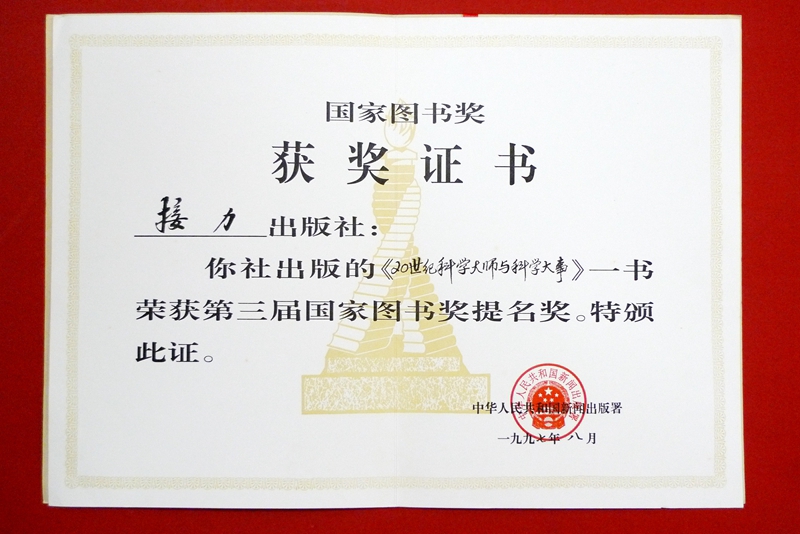 国家图书奖
获奖证书
接力出版社：
你社出版的《20世纪科学大师与科学大事》一书
荣获第三届国家图书奖提名奖。特颁
此证。
中华人民共和国新闻出版署
中华人民共和国新闻出版署
一九九七年八月